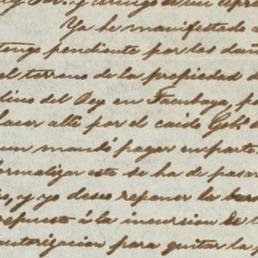 Ya he manifestado a
tengo pendiente por los dañ
el terreno de la propiedad d
lino del Rey en Tacubaya, p
hacer allí por el caido Gob.
un mandó pagar en parte.
formalizar este se ha de pasar
, y yo deseo reponer la bar
repuesto á la incursion de
autorizacion para quitar la p